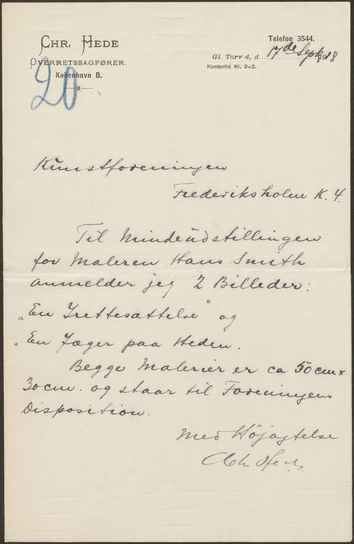 Chr. Hede
Overretssagfører.
København B.
Telefon 3544.
Gl. Torv 4, 2.
17de Sept.
20
Kunstforeningen
Frederiksholm K. 4.
Til Mindeudstillingen
for Maleren Hans Smith
anmelder jeg 2 Billeder:
„En Irettesættelse" og
„En Jæger paa Heden.
Begge Malerier er ca 50 cm x
30 cm. og staar til Foreningens
Disposition.
Med Højagtelse
Chr. Hede